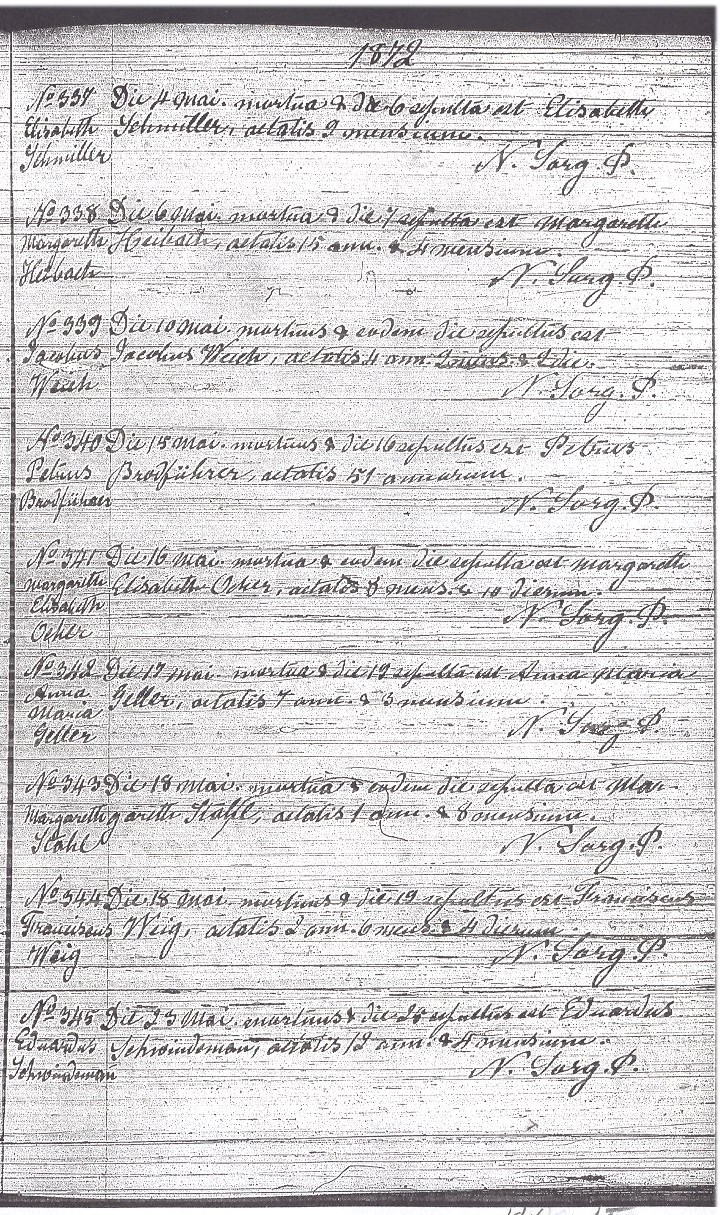 1872
No 337 Die 4 Mai. mortua & die 6 sepulta est Elisabeth
Elisabeth Schmiller, aetatis 9 mensium.
Schmiller N. Sorg. P.
No 338 Die 6 Mai. mortua & die 7 sepulta est Margareth
Margareth Heibach, aetatis 15 ann. & 4 mensium.
Heibach N. Sorg. P.
No 339 Die 10 Mai. mortuus & eodem die sepultus est
Jacobus Jacobus Weich, aetatis 4 ann. 2 mens. & 2 die.
Weich N. Sorg. P.
No 340 Die 15 Mai. mortuus & die 16 sepultus est Petrus
Petrus Brodführer, aetatis 51 annorum.
Brodführer N. Sorg. P.
No 341 Die 16 Mai. mortua & eodem die sepulta est Margareth
Margareth Elisabeth Ocher, aetatis 8 mens. & 10 dierum.
Elisabeth N. Sorg. P.
Ocher
No 342 Die 17 Mai. mortua & die 19 sepulta est Anna Maria
Anna Geller, aetatis 7 ann. & 3 mensium.
Maria N. Sorg. P.
Geller
No 343 Die 18 Mai. mortua & eodem die sepulta est Mar-
Margareth gareth Stahl, aetatis 1 ann. & 8 mensium.
Stahl N. Sorg. P.
No 344 Die 18 Mai. mortuus & die 19 sepultus est Franciscus
Franciscus Weig, aetatis 2 ann. 6 mens. & 4 dierum.
Weig N. Sorg. P.
No 345 Die 23 Mai. mortuus & die 25 sepultus est Eduardus
Eduardus Schwindeman, aetatis 12 ann. & 4 mensium.
Schwindeman N. Sorg. P.